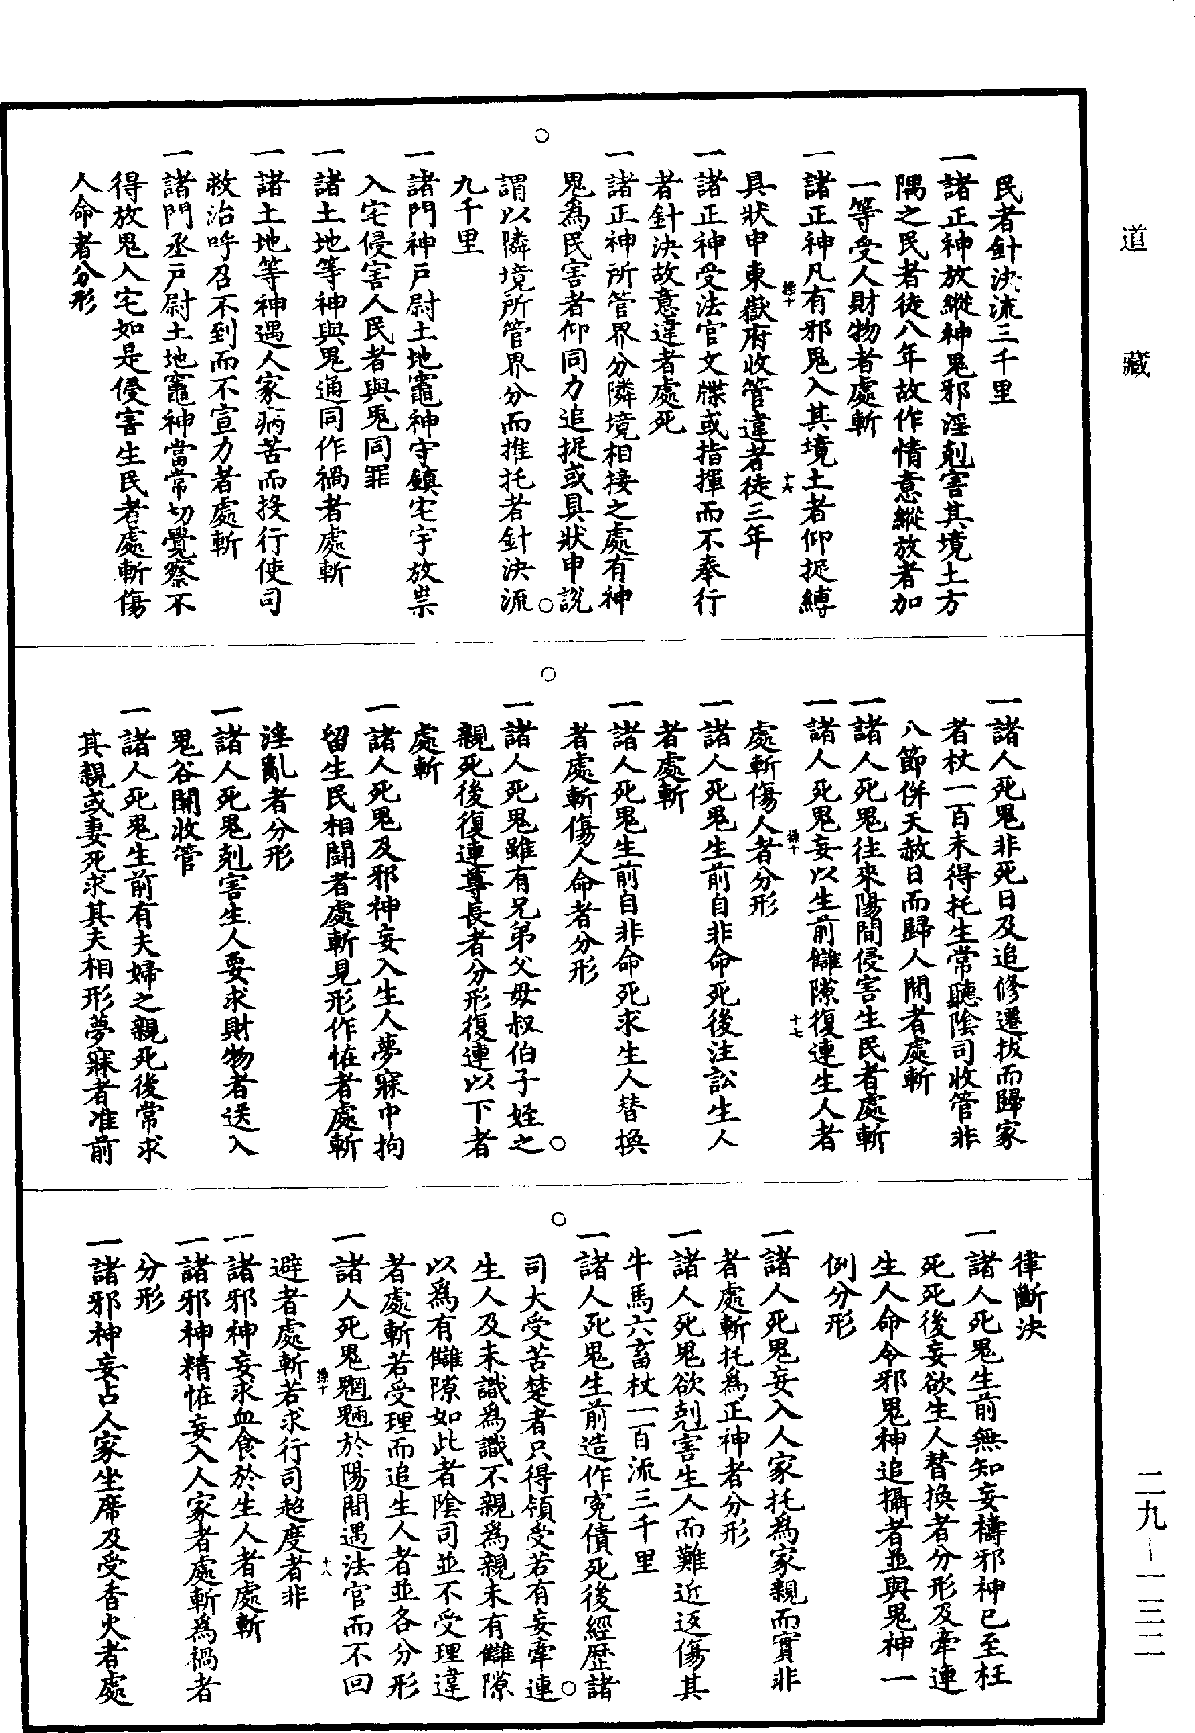 道藏
民者針決流三千里
一諸正神放縱神鬼邪淫剋害其境土方
隅之民者徒八年故作情意縱放者加
一等受人財物者處斬
一諸正神凡有邪鬼入其境土者仰捉縛
具狀申東嶽府收管違者徒三年
一諸正神受法官文牒或指揮而不奉行
者針決故意違者處死
一諸正神所管界分隣境相接之處有神
鬼為民害者仰同力追捉或具狀申說
謂以隣境所管界分而推托者針決流
九千里
一諸門神戶尉土地竈神守鎮宅宇放祟
入宅侵害人民者與鬼同罪
一諸土地等神與鬼通同作禍者處斬
一諸土地等神遇人家病苦而投行使司
救治呼召不到而不宣力者處斬
一諸門丞戶尉土地竈神當常切覺察不
得放鬼入宅如是侵害生民者處斬傷
人命者分形
一諸人死鬼非死日及追修遷拔而歸家
者杖一百未得托生常聽陰司收管非
八節併天赦日而歸人間者處斬
一諸人死鬼往來陽間侵害生民者處斬
一諸人死鬼妄以生前讎隙復連生人者
處斬傷人者分形
一諸人死鬼生前自非命死後注訟生人
者處斬
一諸人死鬼生前自非命死求生人替換
者處斬傷人命者分形
一諸人死鬼雖有兄弟父母叔伯子姪之
親死後復連尊長者分形復連以下者
處斬
一諸人死鬼及邪神妄入生人夢寐中拘
留生民相鬪者處斬見形作怪者處斬
淫亂者分形
一諸人死鬼剋害生人要求財物者送入
鬼谷關收管
一諸人死鬼生前有夫婦之親死後常求
其親或妻死求其夫相形夢寐者准前
律斷決
一諸人死鬼生前無知妄禱邪神已至枉
死死後妄欲生人替換者分形及牽連
生人命令邪鬼神追攝者並與鬼神一
例分形
一諸人死鬼妄入人家托為家親而實非
者處斬托為正神者分形
一諸人死鬼欲剋害生人而難近返傷其
牛馬六畜杖一百流三千里
一諸人死鬼生前造作寃債死後經歷諸
司大受苦楚者只得領受若有妄牽連
生人及未識為識不親為親未有讎隙
以為有讎隙如此者陰司並不受理違
者處斬若受理而追生人者並各分形
一諸人死鬼魍魎於陽間遇法官而不回
避者處斬若求行司超度者非
一諸邪神妄求血食於生人者處斬
一諸邪神精怪妄入人家者處斬為禍者
分形
一諸邪神妄占人家坐席及受香火者處
二九—一三二